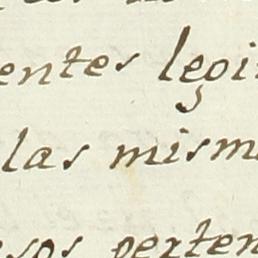 entes legi
las mism
sos perten